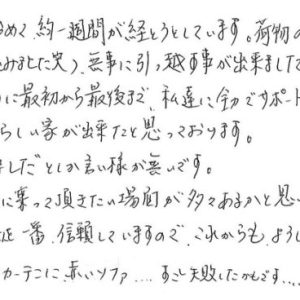 めて約一週間が経とうとしています。荷物の
みました笑)、無事に引っ越す事が出来ました
に最初から最後まで、私達に全力でサポート
らしい家が出来たと思っております。
しだとしか言い様が無いです。
に乗って頂きたい場面が多々あるかと思い
一番、信頼していますので、これからも、よろし
カーテンに、赤いソファ.... すこし失敗したかもです...